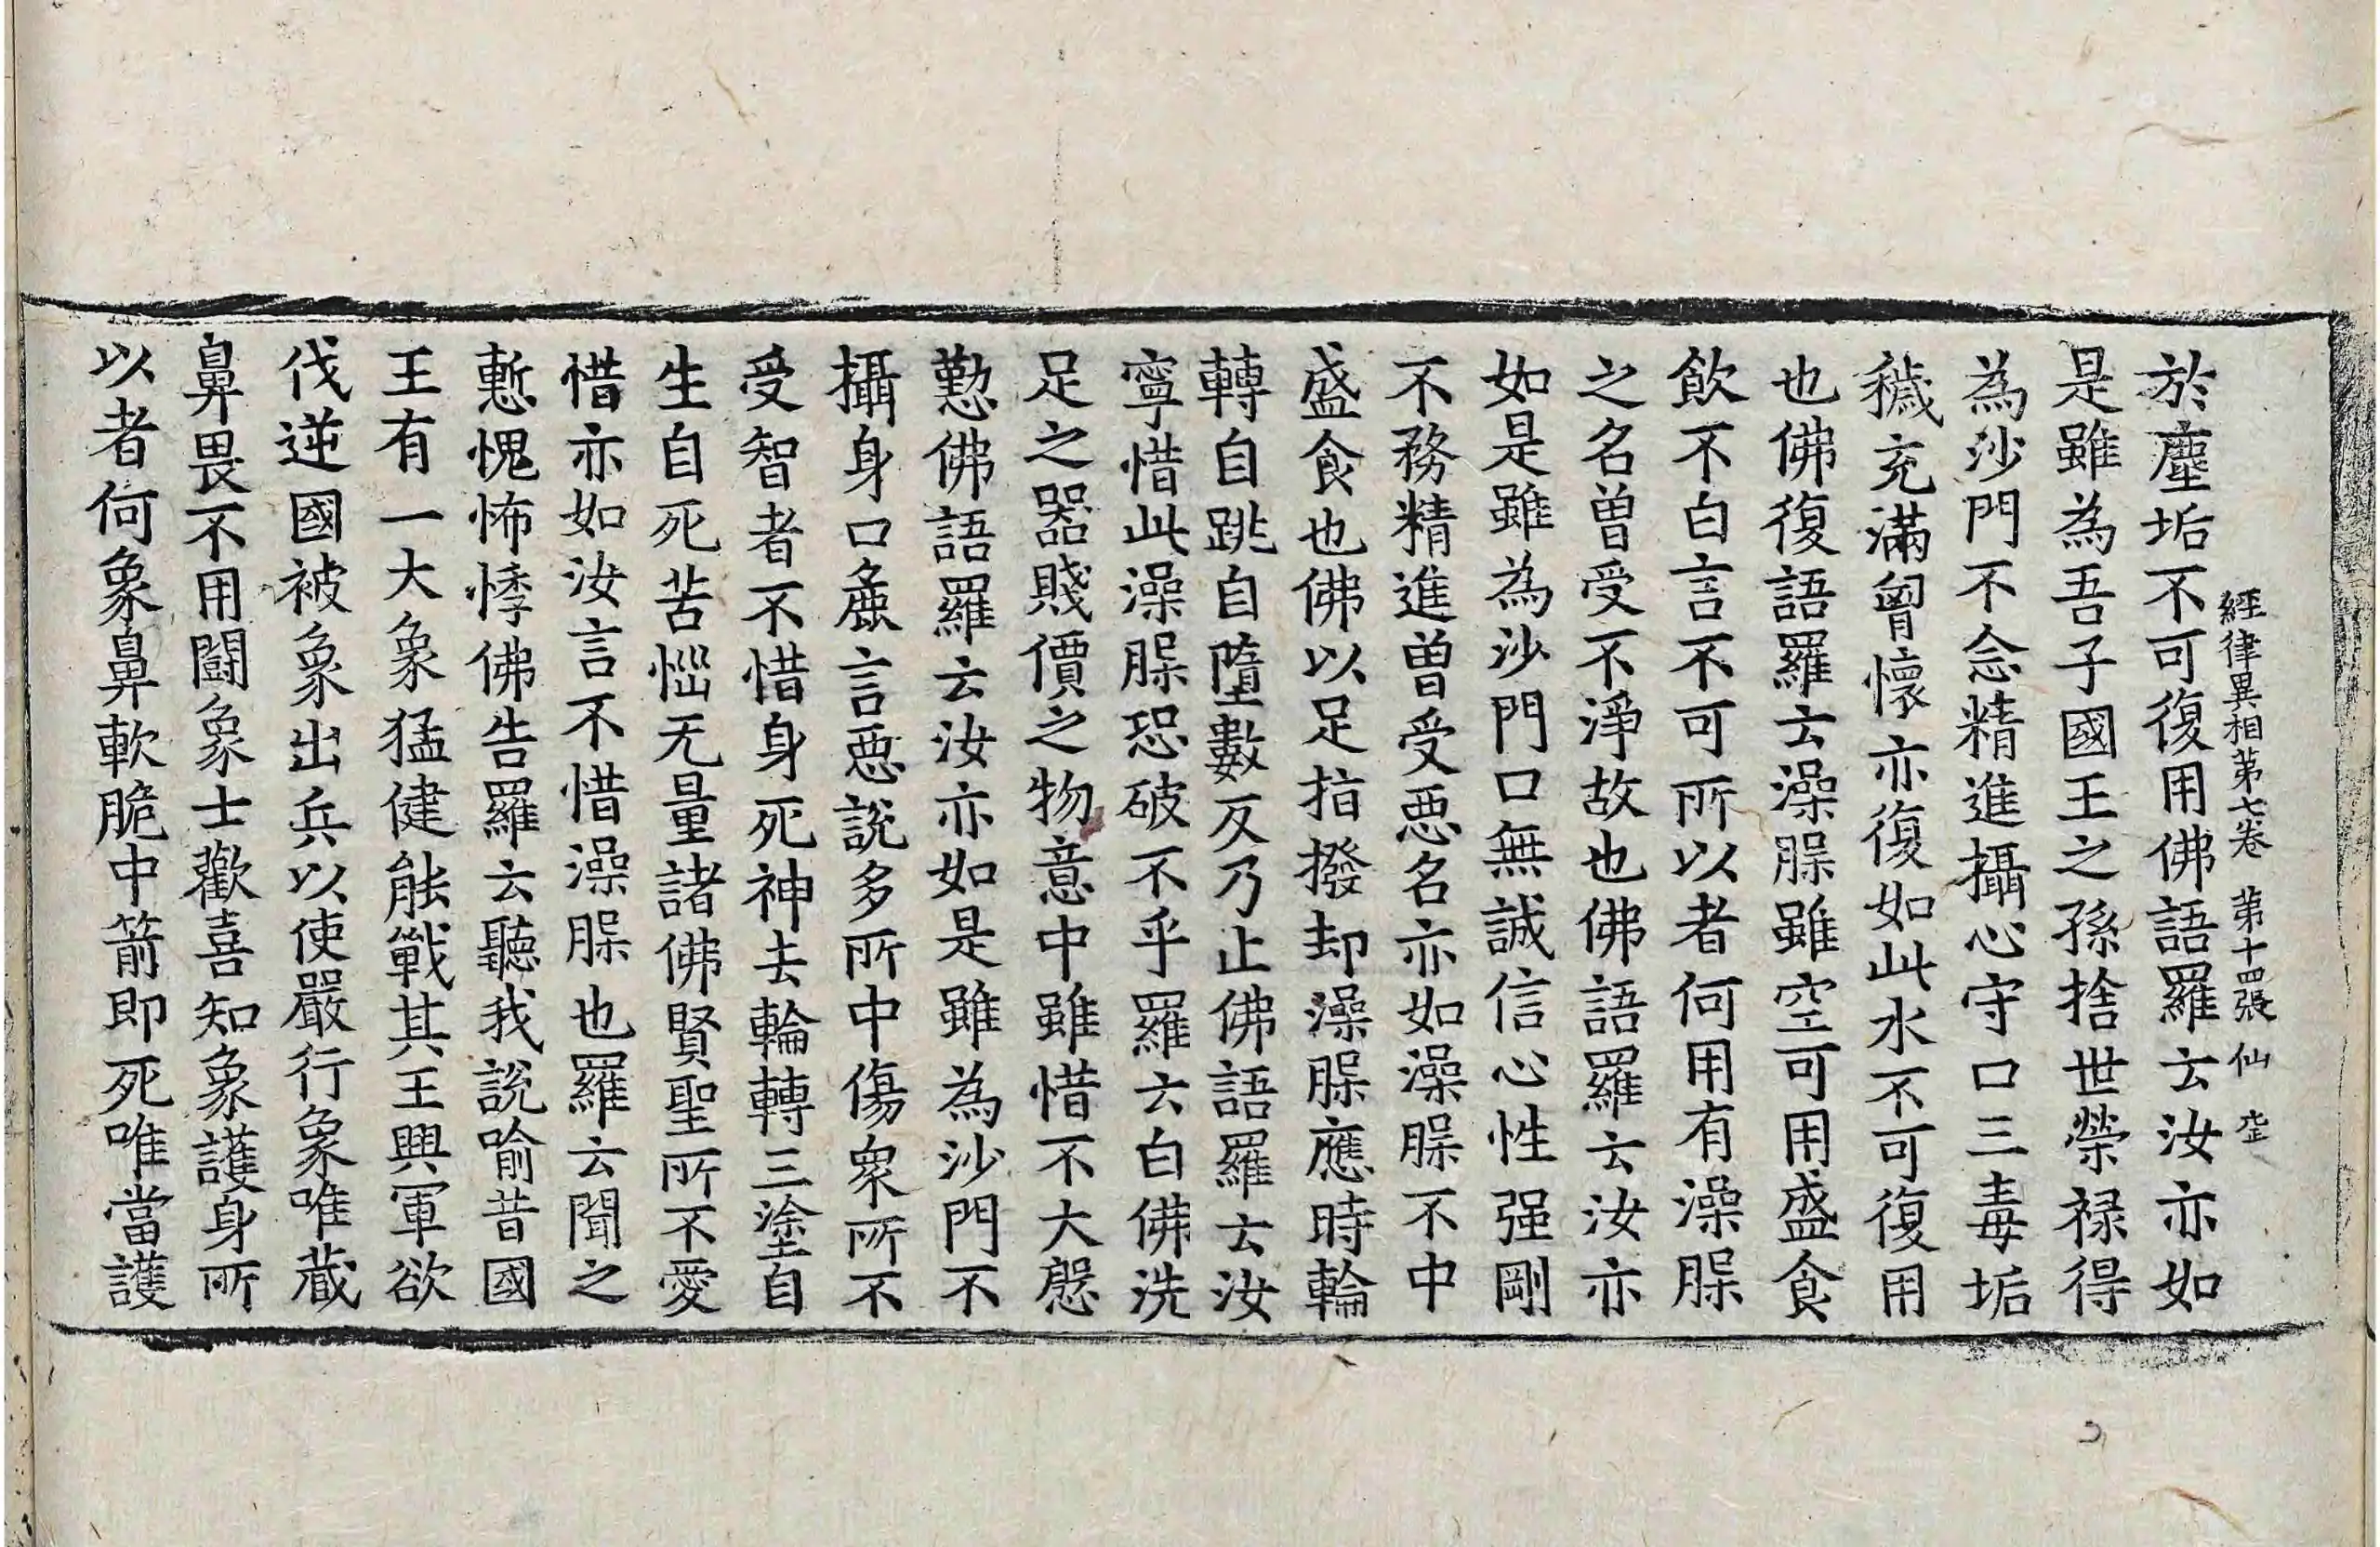 經律異相第七卷 第十四張 仙
於塵垢不可復用佛語羅云汝亦如
是雖為吾子國王之孫捨世榮祿得
為沙門不念精進攝心守口三毒垢
穢充滿胷懷亦復如此水不可復用
也佛復語羅云澡脲雖空可用盛食
飲不白言不可所以者何用有澡脲
之名曾受不淨故也佛語羅云汝亦
如是雖為沙門口無誠信心性强剛
不務精進曾受惡名亦如澡脲不中
盛食也佛以足指撥却澡脲應時輪
轉自跳自墮數反乃止佛語羅云汝
寧惜此澡脲恐破不乎羅云白佛洗
足之器賤價之物意中雖惜不大慇
懃佛語羅云汝亦如是雖為沙門不
攝身口麁言惡說多所中傷衆所不
受智者不惜身死神去輪轉三塗自
生自死苦惱无量諸佛賢聖所不愛
惜亦如汝言不惜澡脲也羅云聞之
慙愧怖悸佛告羅云聽我說喻昔國
王有一大象猛健能戰其王興軍欲
伐逆國被象出兵以使嚴行象唯藏
鼻畏不用鬪象士歡喜知象護身所
以者何象鼻軟脆中箭即死唯當護